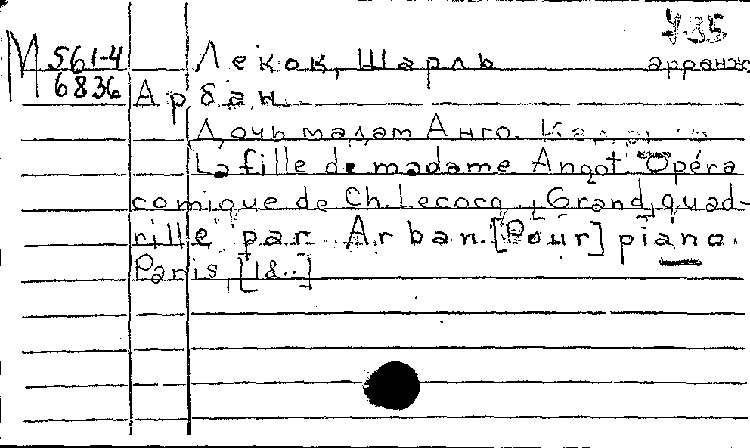 735
М 561-4 Лекок, Шарль аранж
6836 Арбан.
Дочь мадам Анго.
La fille de madame Angot. Opéra
comique de Ch. Lecocq. Grand quad-
rille par Arban. [Pour] piano.
Paris, [18..]